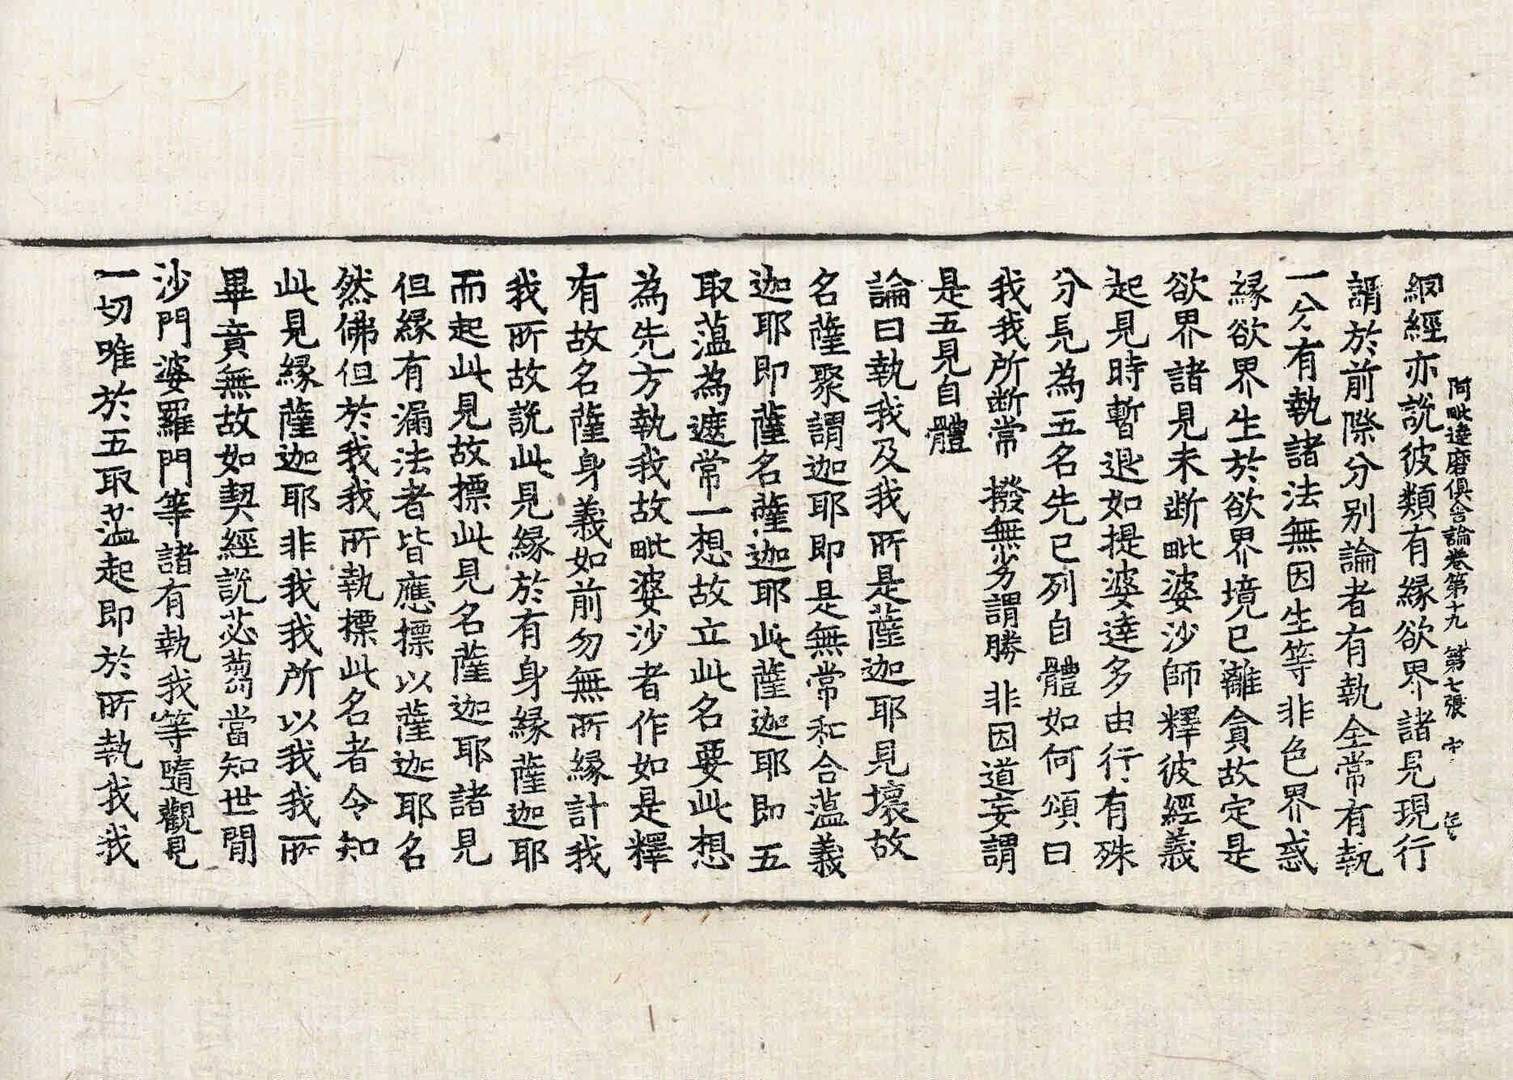 阿毗達磨俱舍論卷第十九 第七張
網經亦說彼類有緣欲界諸見現行
謂於前際分別論者有執全常有執
一分有執諸法無因生等非色界惑
緣欲界生於欲界境已離貪故定是
欲界諸見未斷毗婆沙師釋彼經義
起見時暫退如提婆達多由行有殊
分見為五名先已列自體如何頌曰
我我所斷常 撥無劣謂勝 非因道妄謂
是五見自體
論曰執我及我所是薩迦耶見壞故
名薩聚謂迦耶即是無常和合薀義
迦耶即薩名薩迦耶此薩迦耶即五
取薀為遮常一想故立此名要此想
為先方執我故毗婆沙者作如是釋
有故名薩身義如前勿無所緣計我
我所故說此見緣於有身緣薩迦耶
而起此見故摽此見名薩迦耶諸見
但緣有漏法者皆應摽以薩迦耶名
然佛但於我我所執摽此名者令知
此見緣薩迦耶非我我所以我我所
畢竟無故如契經說苾蒭當知世間
沙門婆羅門等諸有執我等隨觀見
一切唯於五取薀起即於所執我我